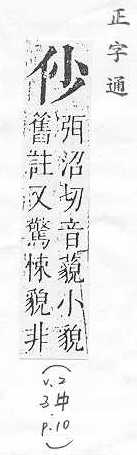 正字通
仯
弭沼切音藐小貌
舊註又驚悚貌非
(v.2
子中
p.10)